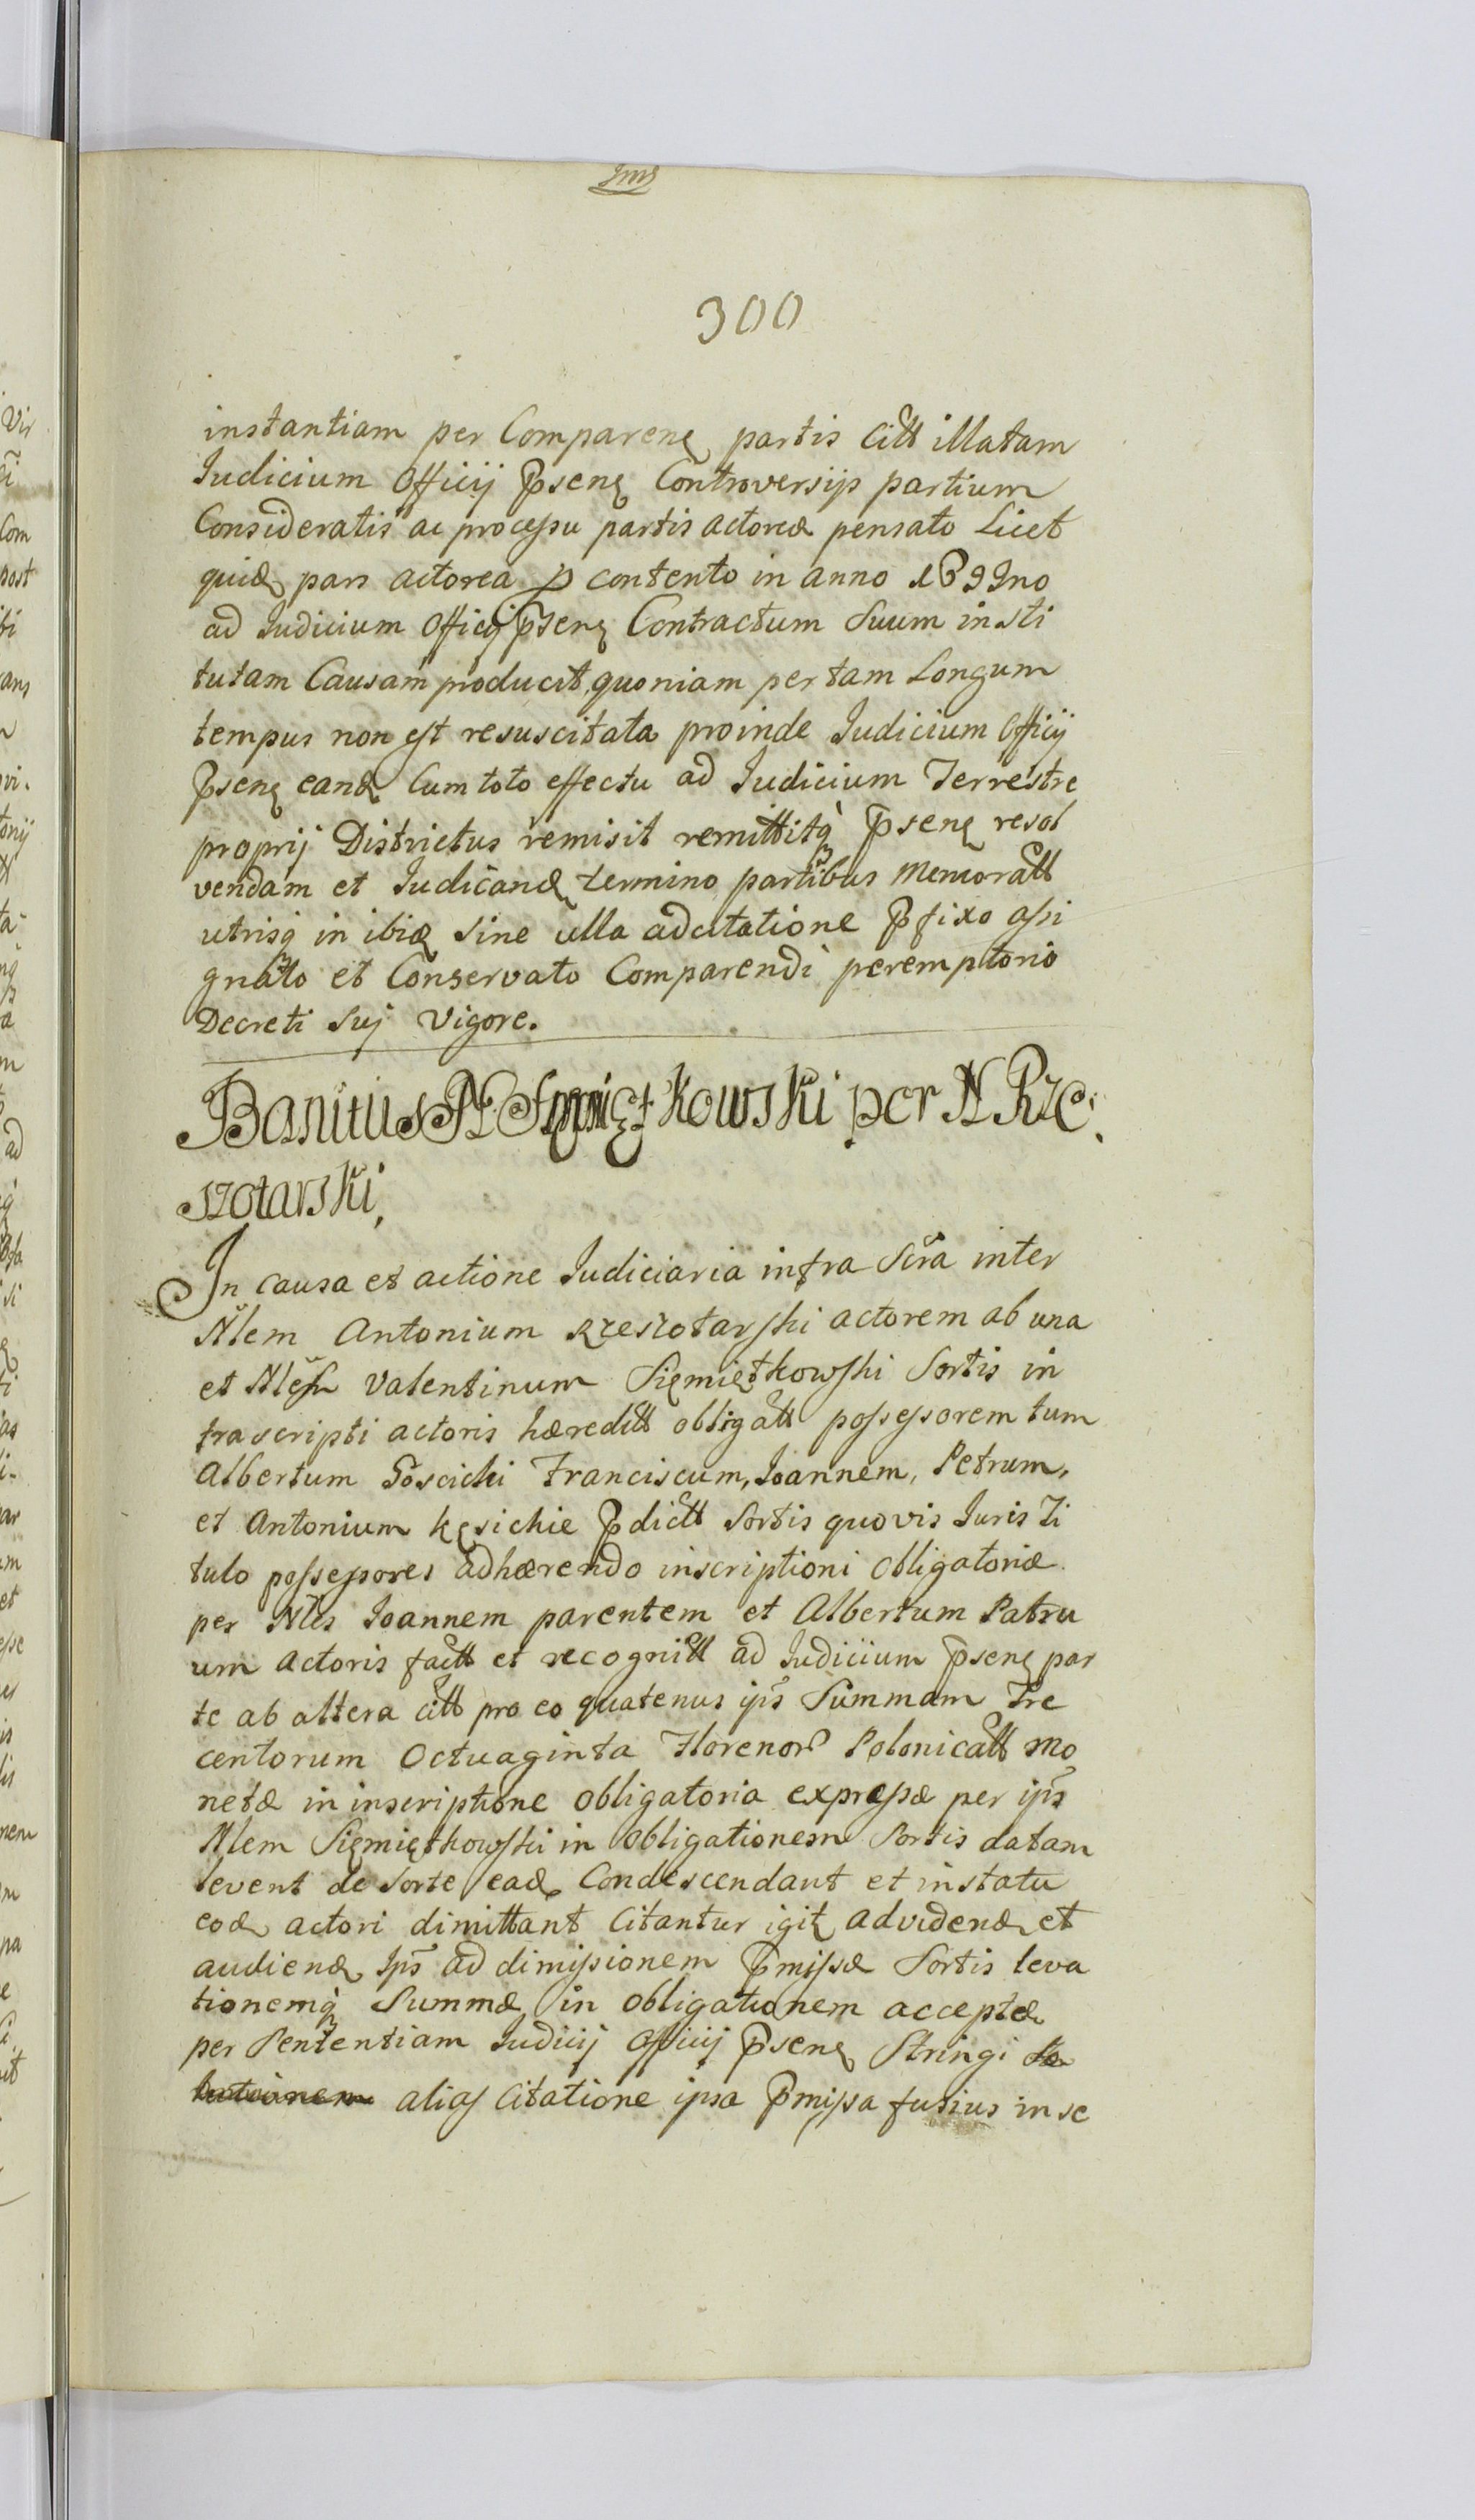 300
instantiam per Compareñ partis Citt illatam
Iudicium Officij p̄señ Controversijs partium
Consideratis ac processu partis actoreæ pensato Licet
quid pars actorea p contento in anno
ad Iudicium Officij p̄señ Contractum Suum insti
tutam Causam producit, quoniam per tam Longum
tempus non est resuscitata proinde Iudicium Officij
p̄señ eand Cum toto effectu ad Iudicium Terrestre
proprij Districtus remisit remittitq p̄señ resol
vendam et Iudicand termino partibus Memoratt
utrisq in ibid Sine ulla adcitatione p̄fixo assi
gnato et Conservato Comparendi peremptorio
Decreti Suj Vigore.
Banitus N. Siemiętkowski per N. Rze:
szotarski,
In causa et actione Iudiciaria infra Scra inter
Nlem Antonium Rzeszotarski actorem ab una
et Nlem Valentinum Sięmiętkowski Sortis in
frascripti actoris hæreditt obligatt possessorem tum
Albertum Goscicki Franciscum, Ioannem, Petrum,
et Antonium Kęsickie p̄dictt Sortis quovis Iuris Ti
tulo possessores adhærendo inscriptioni obligatoriæ
per Nles Ioannem parentem et Albertum Patru
um Actoris factt et recognitt ad Iudicium p̄señ par
te ab altera citt pro eo quatenus ips Summam Tre
centorum Octuaginta Florenor Polonicatt Mo
netæ in inscriptione obligatoria expressæ per ips
Nlem Sięmiętkowski in obligationem Sortis datam
levent de Sorte ead Condescendant et in statu
eod actori dimittant Citantur igit advidend et
audiend Ips ad dimissionem p̄missæ Sortis leva
tionemq Summæ in obligationem acceptæ
per Sententiam Iudicij Officij p̄señ Stringi
alias Citatione ipsa p̄missa fusius in se